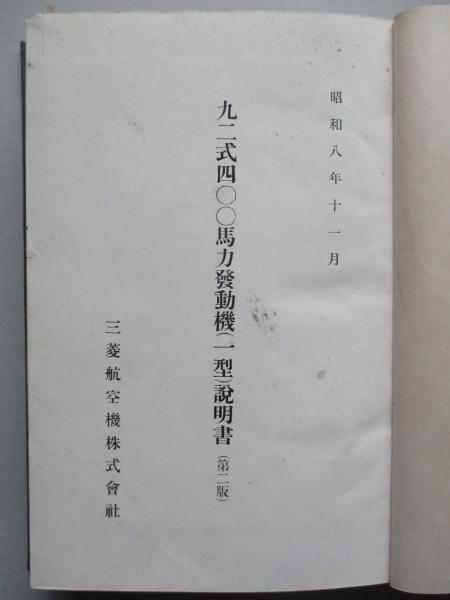 昭和八年十一月
九二式四〇〇馬力發動機(一型)說明書(第二版)
三菱航空機株式會社